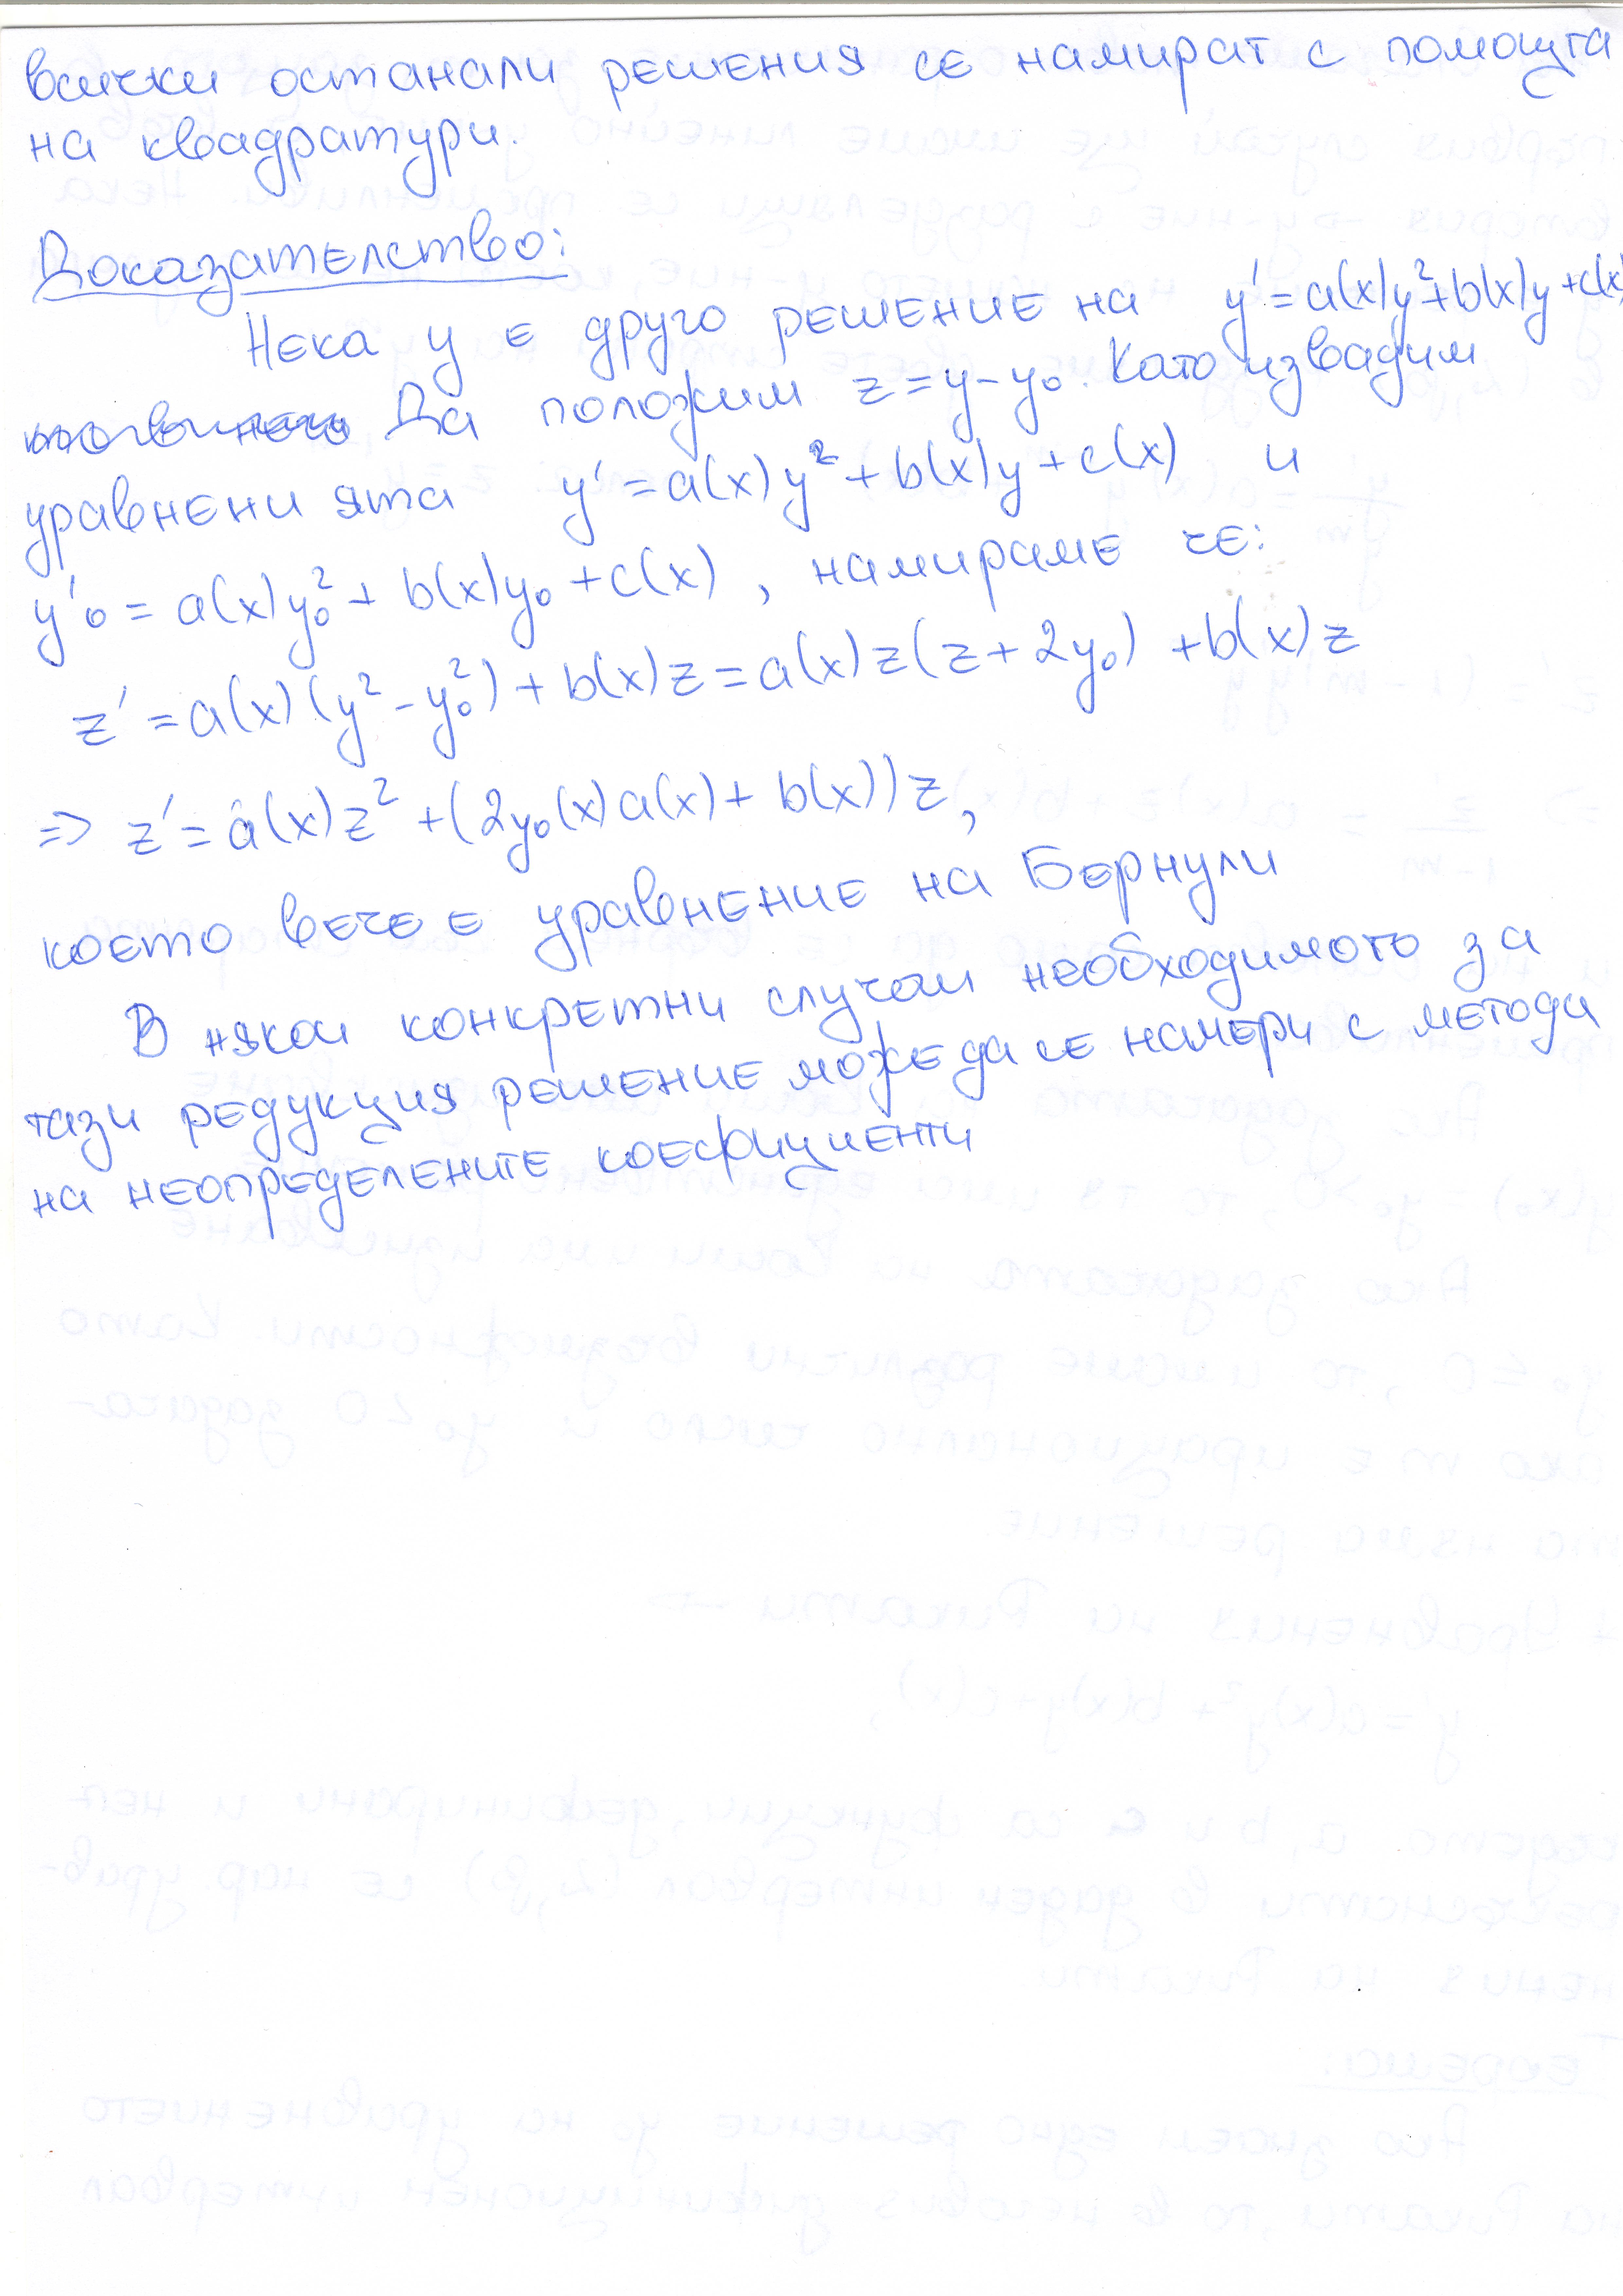 всички останали решения се намират с помощта
на квадратури.
Доказателство:
Нека y е друго решение на y' = a(x)y²+b(x)y+c(x)
Да положим z = y - y₀. Като извадим
уравненията y' = a(x)y² + b(x)y + c(x) и
y'₀ = a(x)y₀² + b(x)y₀ + c(x), намираме че:
z' = a(x)(y² - y₀²) + b(x)z = a(x)z(z + 2y₀) + b(x)z
=> z' = a(x)z² + (2y₀(x)a(x) + b(x))z,
което вече е уравнение на Бернули
В някои конкретни случаи необходимото за
тази редукция решение може да се намери с метода
на неопределените коефициенти